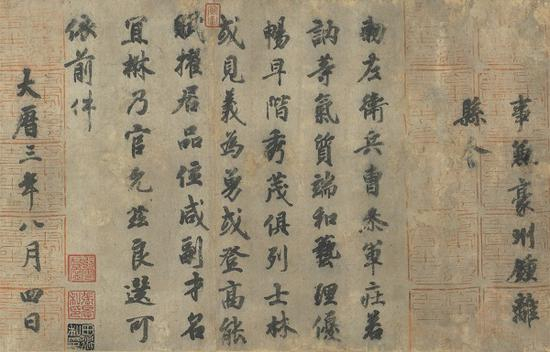 事兼豪州鍾離
縣令
勅左衛兵曹叅軍莊若
訥等氣質端和藝理優
暢早階秀茂俱列士林
或見義為勇或登高能
賦擢居品位咸副才名
宜楙乃官允茲良選可
依前件
大曆三年八月四日